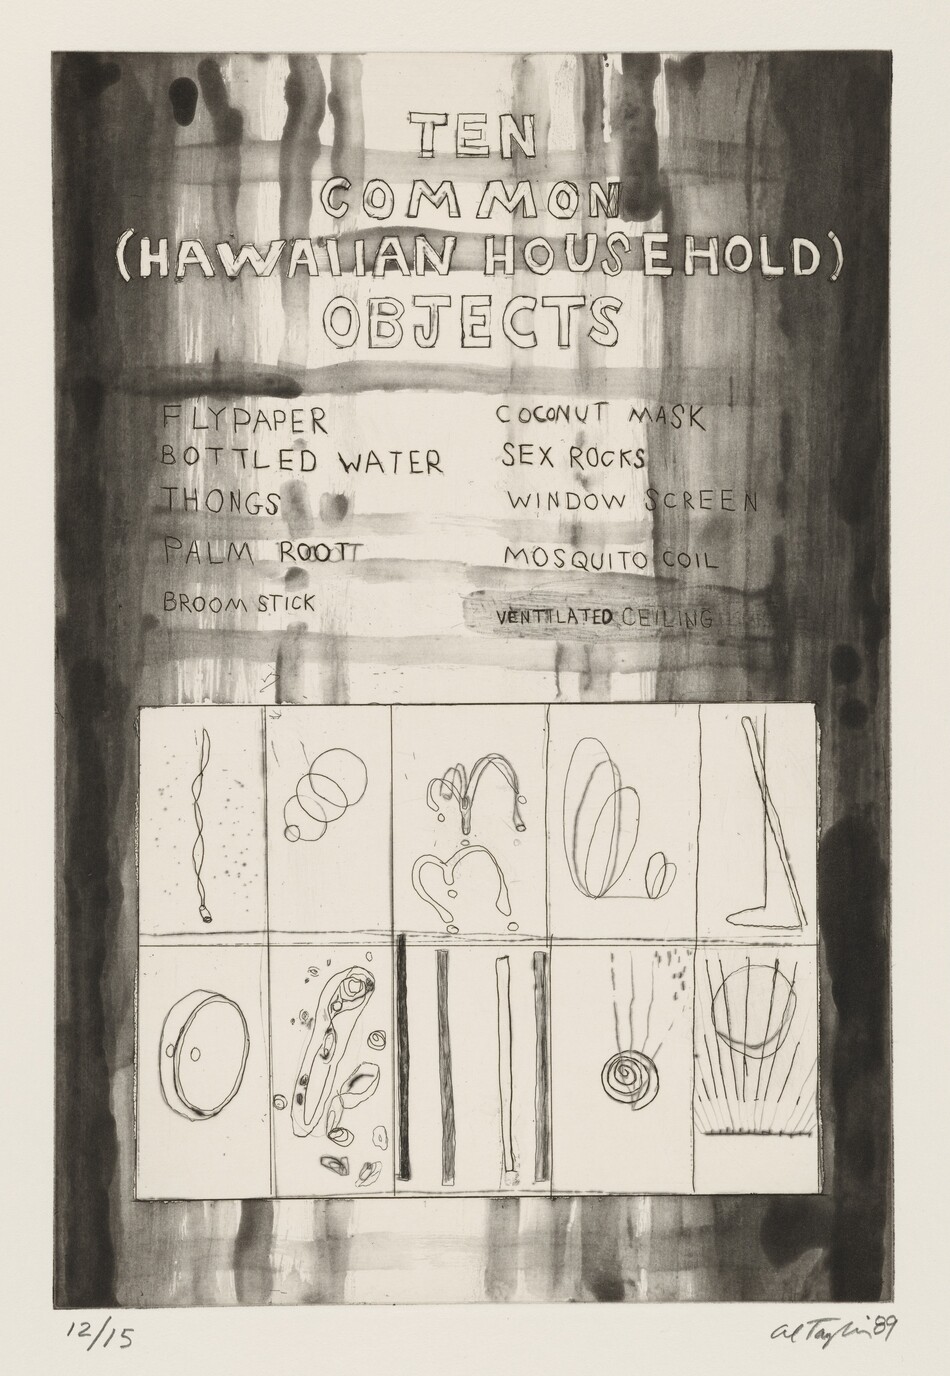 TEN
COMMON
(HAWAIIAN HOUSEHOLD)
OBJECTS
FLYPAPER
BOTTLED WATER
THONGS
PALM ROOT
BROOM STICK
COCONUT MASK
SEX ROCKS
WINDOW SCREEN
MOSQUITO COIL
VENTILATED CEILING
12/15
Al Taylor '89